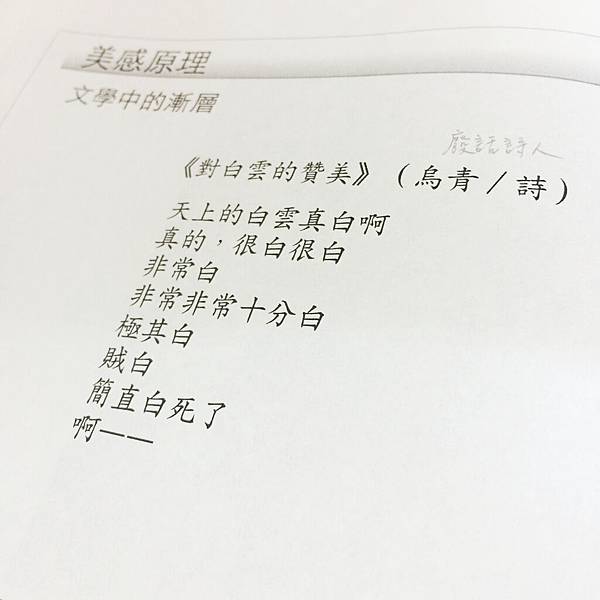 美感原理
文學中的漸層
廢話詩人
《對白雲的贊美》（烏青／詩）
天上的白雲真白啊
真的，很白很白
非常白
非常非常十分白
極其白
賊白
簡直白死了
啊——